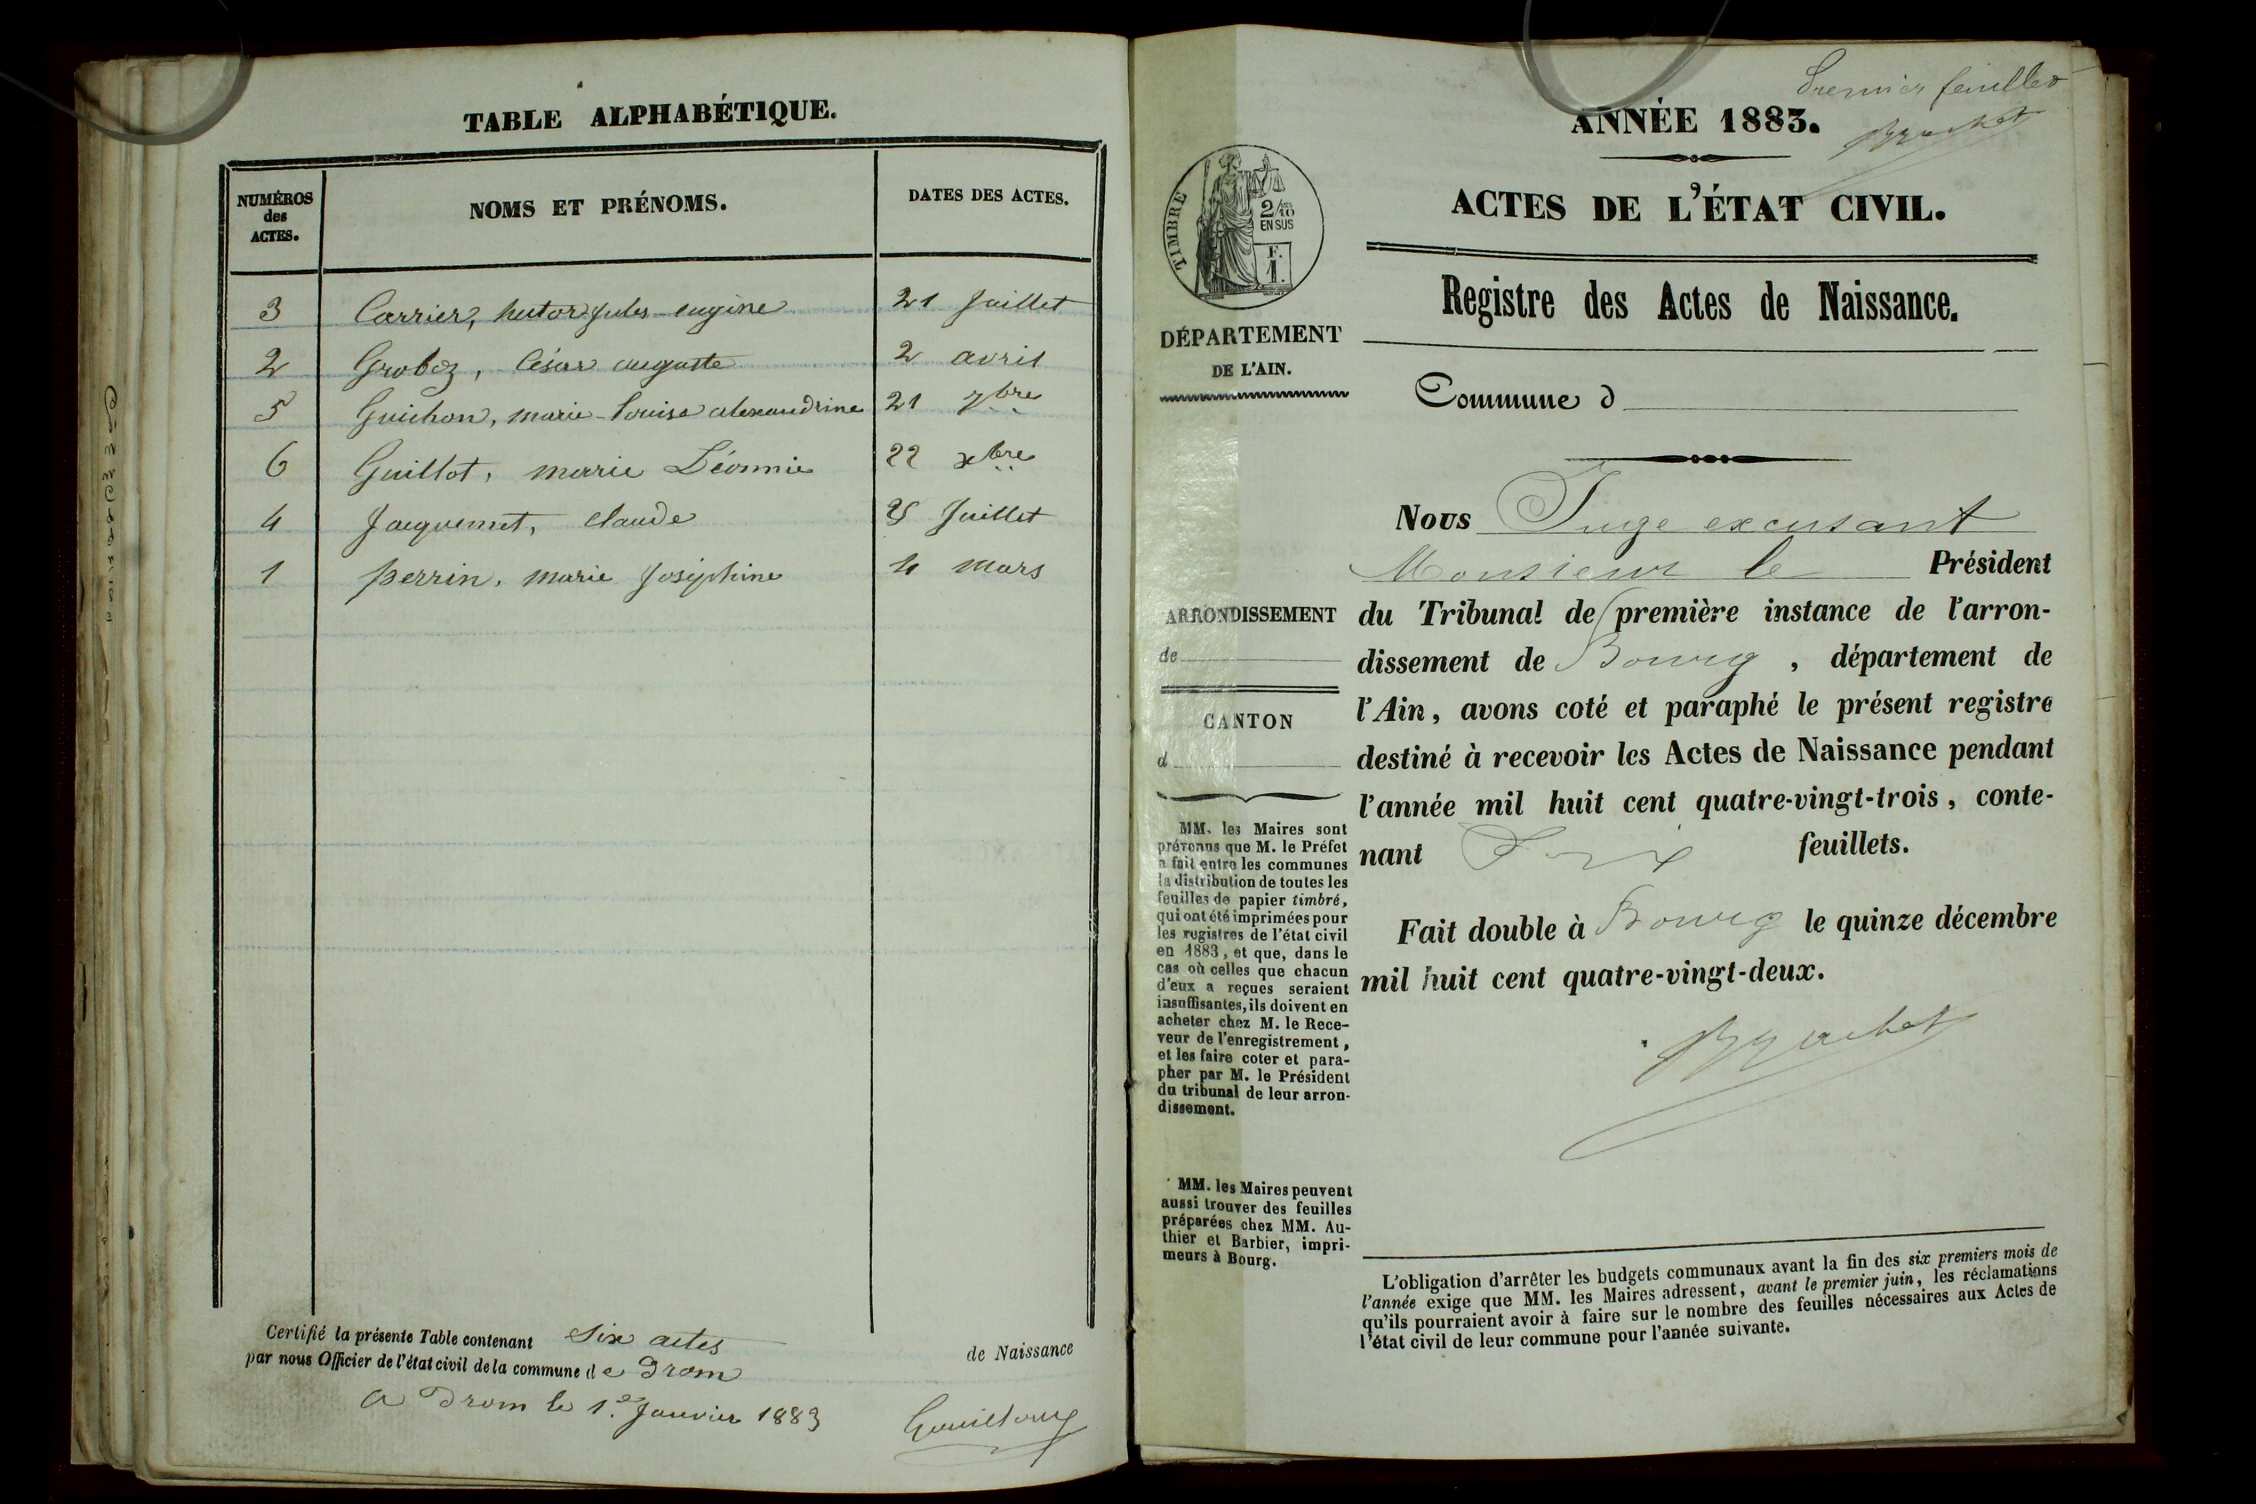 TABLE ALPHABÉTIQUE.
NUMÉROS des ACTES.
NOMS ET PRÉNOMS.
DATES DES ACTES.
3 Carrier, hector jules eugène 21 Juillet
2 Groboz, César auguste 2 avril
5 Guichon, marie-louise alexandrine 21 7bre
6 Guillot, marie Léonnie 22 xbre
4 Jacquemet, claude 25 Juillet
1 perrin, marie Joséphine 4 mars
Certifié la présente Table contenant six actes de Naissance
par nous Officier de l'état civil de la commune de Drom
a Drom le 1er Janvier 1883
premier feuillet
Brachet
ANNÉE 1883.
ACTES DE L'ÉTAT CIVIL.
TIMBRE
2/10 EN SUS
F. 1.
Registre des Actes de Naissance.
DÉPARTEMENT
DE L'AIN.
Commune d
Nous Juge excusant
Monsieur le Président
du Tribunal de première instance de l'arron-
dissement de Bourg, département de
l'Ain, avons coté et paraphé le présent registre
destiné à recevoir les Actes de Naissance pendant
l'année mil huit cent quatre-vingt-trois, conte-
nant Six feuillets.
Fait double à Bourg le quinze décembre
mil huit cent quatre-vingt-deux.
Brachet
ARRONDISSEMENT
de
CANTON
d
MM. les Maires sont
prévenus que M. le Préfet
a fait entre les communes
la distribution de toutes les
feuilles de papier timbré,
qui ont été imprimées pour
les registres de l'état civil
en 1883, et que, dans le
cas où celles que chacun
d'eux a reçues seraient
insuffisantes, ils doivent en
acheter chez M. le Rece-
veur de l'enregistrement,
et les faire coter et para-
pher par M. le Président
du tribunal de leur arron-
dissement.
MM. les Maires peuvent
aussi trouver des feuilles
préparées chez MM. Au-
thier et Barbier, impri-
meurs à Bourg.
L'obligation d'arrêter les budgets communaux avant la fin des six premiers mois de
l'année exige que MM. les Maires adressent, avant le premier juin, les réclamations
qu'ils pourraient avoir à faire sur le nombre des feuilles nécessaires aux Actes de
l'état civil de leur commune pour l'année suivante.